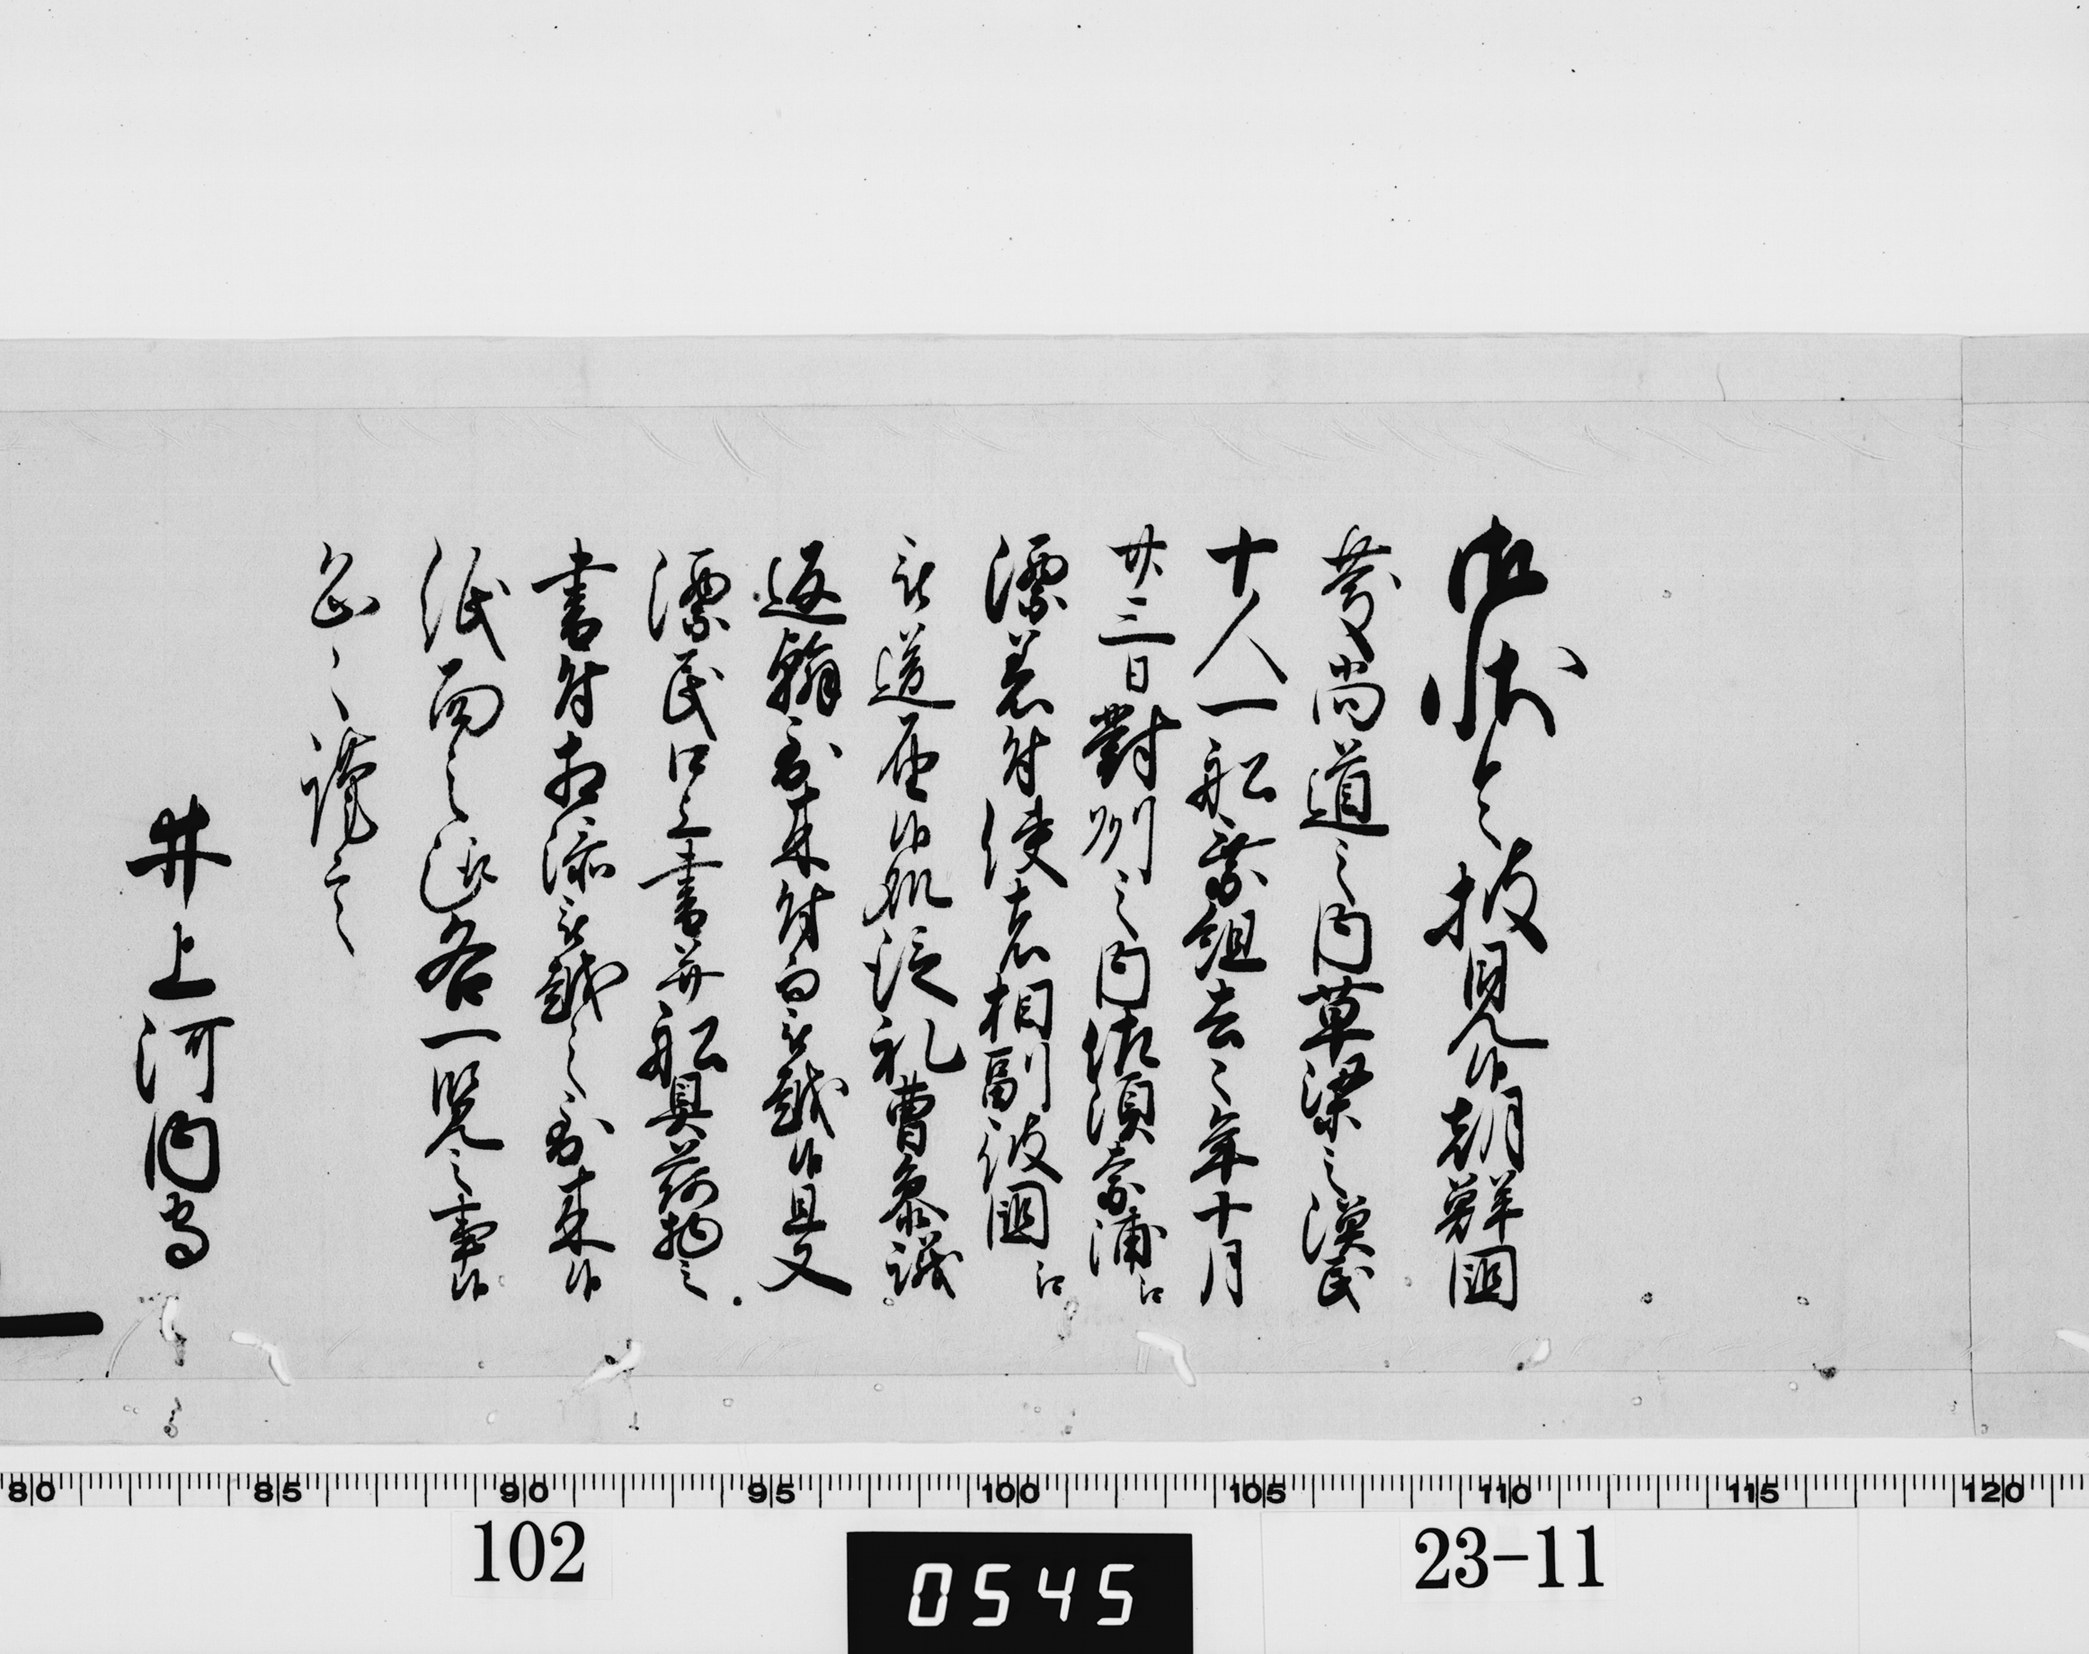 御状令披見候朝鮮国
慶尚道之内草梁之漢民
十人一船乗組去々年十月
廿三日對州之内佐須奈浦江
漂着付使者相副彼国江
被送届候処従礼曹参議
返翰到来付而被越候且又
漂民口上書并船具荷物之
書付相添被越之到来候
紙面之通各一覧之事候
恐々謹言
井上河内守
80 85 90 95 100 105 110 115 120
102
0545
23-11